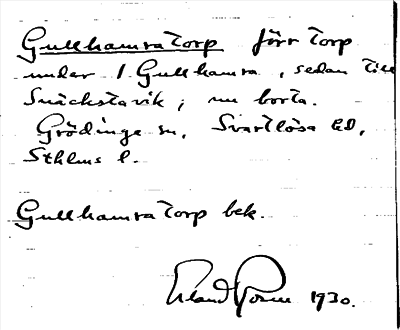 Gullhamratorp förr torp
under 1 Gullhamra, sedan till
Snäckstavik; nu borta.
Grödinge sn, Svartlösa hd,
Sthlms l.
Gullhamratorp bek.
Erland Rosell 1930.